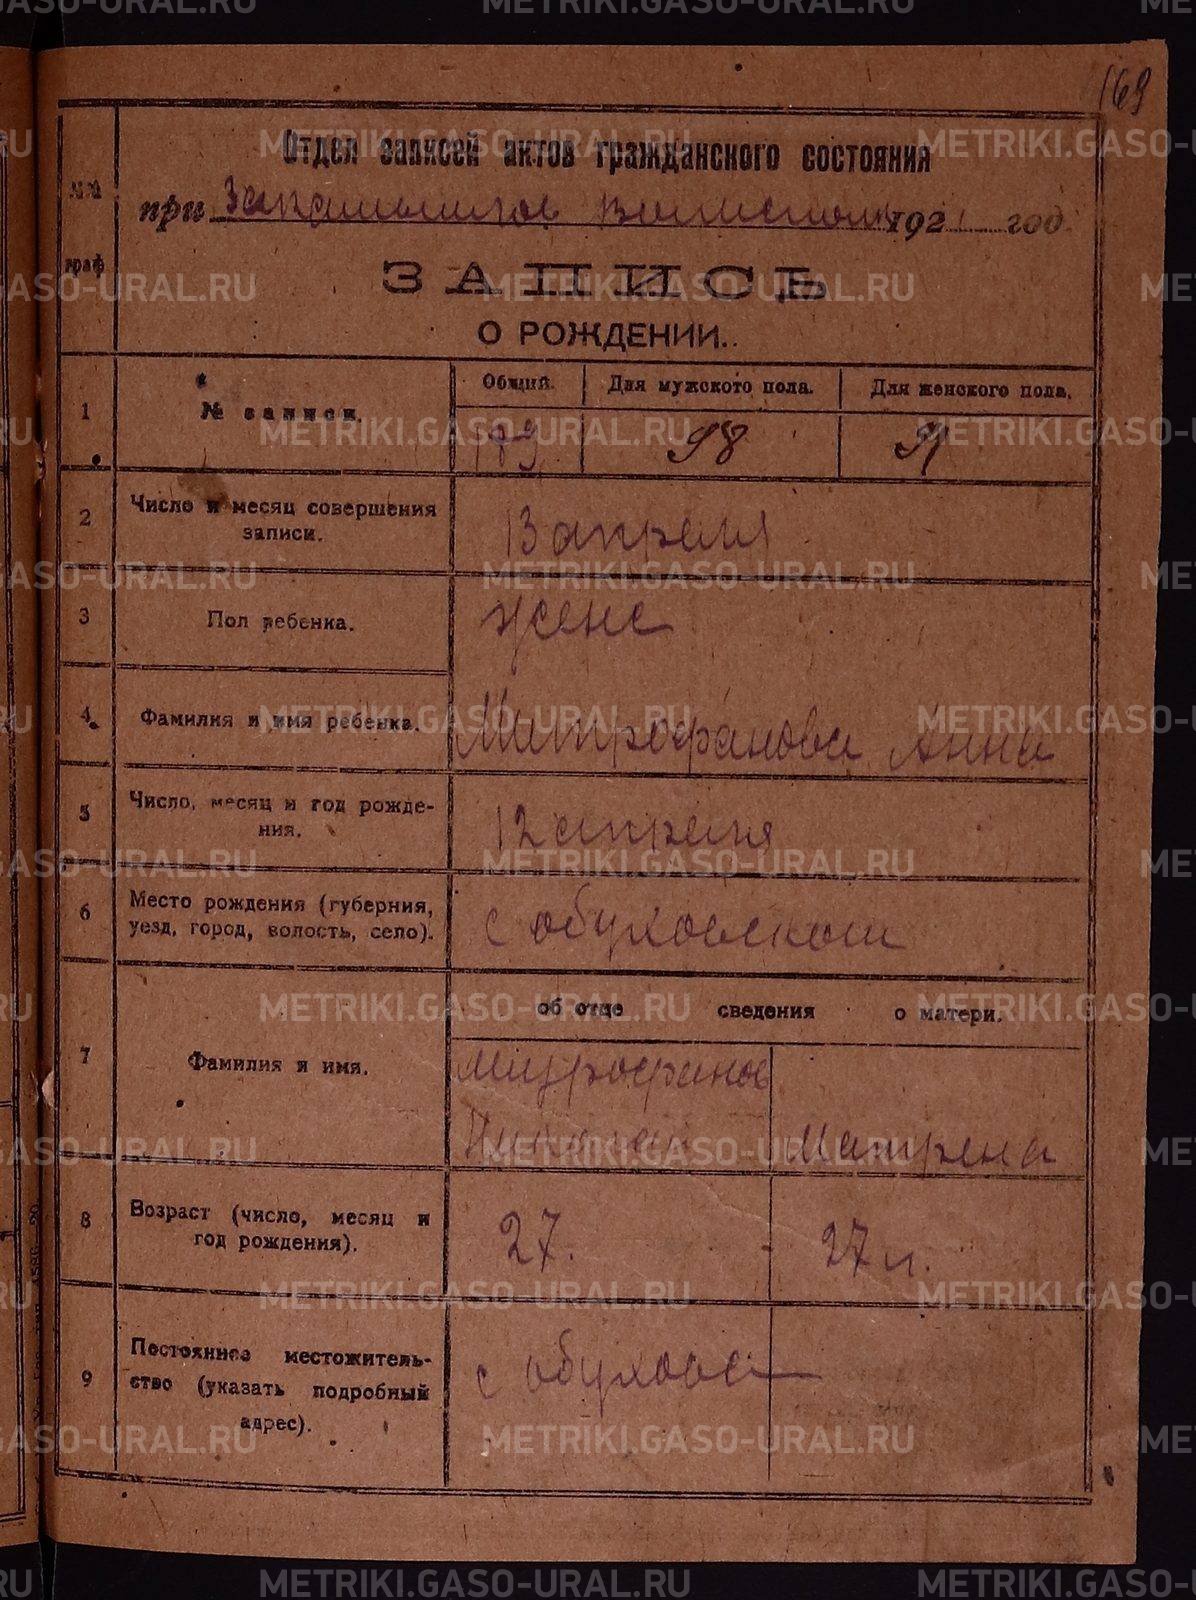 169
Отдел записей актов гражданского состояния
при Закамышлов волисполк 1921 год.
№№ граф
ЗАПИСЬ
О РОЖДЕНИИ.
1
№ записи.
Общий. Для мужского пола. Для женского пола.
189 98 91
2
Число и месяц совершения
записи.
13 апреля
3
Пол ребенка.
женс
4
Фамилия и имя ребенка.
Митрофанова Анна
5
Число, месяц и год рожде-
ния.
12 апреля
6
Место рождения (губерния,
уезд, город, волость, село).
с обуховском
об отце сведения о матери.
7
Фамилия и имя.
Митрофанов
Николай Матрена
8
Возраст (число, месяц и
год рождения).
27. 27 л.
9
Постоянное местожитель-
ство (указать подробный
адрес).
с обуховс
METRIKI.GASO-URAL.RU